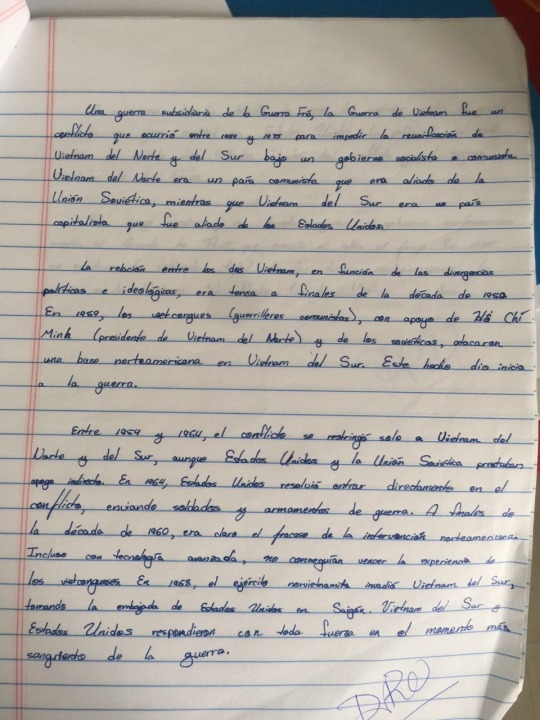 Una guerra subsidiaria de la Guerra Fría, la Guerra de Vietnam fue un
conflicto que ocurrió entre 1959 y 1975 para impedir la reunificación de
Vietnam del Norte y del Sur bajo un gobierno socialista o comunista
Vietnam del Norte era un país comunista que era aliado de la
Unión Soviética, mientras que Vietnam del Sur era un país
capitalista que fue aliado de los Estados Unidos.
La relación entre los dos Vietnam, en función de las divergencias
políticas e ideológicas, era tensa a finales de la década de 1950
En 1959, los vietcongues (guerrilleros comunistas), con apoyo de Hồ Chí
Minh (presidente de Vietnam del Norte) y de los soviéticos, atacaron
una base norteamericana en Vietnam del Sur. Este hecho dio inicio
a la guerra.
Entre 1959 y 1964, el conflicto se restringió solo a Vietnam del
Norte y del Sur, aunque Estados Unidos y la Unión Soviética prestaban
apoyo indirecto. En 1964, Estados Unidos resolvió entrar directamente en el
conflicto, enviando soldados y armamentos de guerra. A finales de
la década de 1960, era claro el fracaso de la intervención norteamericana.
Incluso con tecnología avanzada, no conseguían vencer la experiencia de
los vietcongueses En 1968, el ejército norvietnamita invadió Vietnam del Sur,
tomando la embajada de Estados Unidos en Saigón. Vietnam del Sur y
Estados Unidos respondieron con toda fuerza en el momento más
sangriento de la guerra.